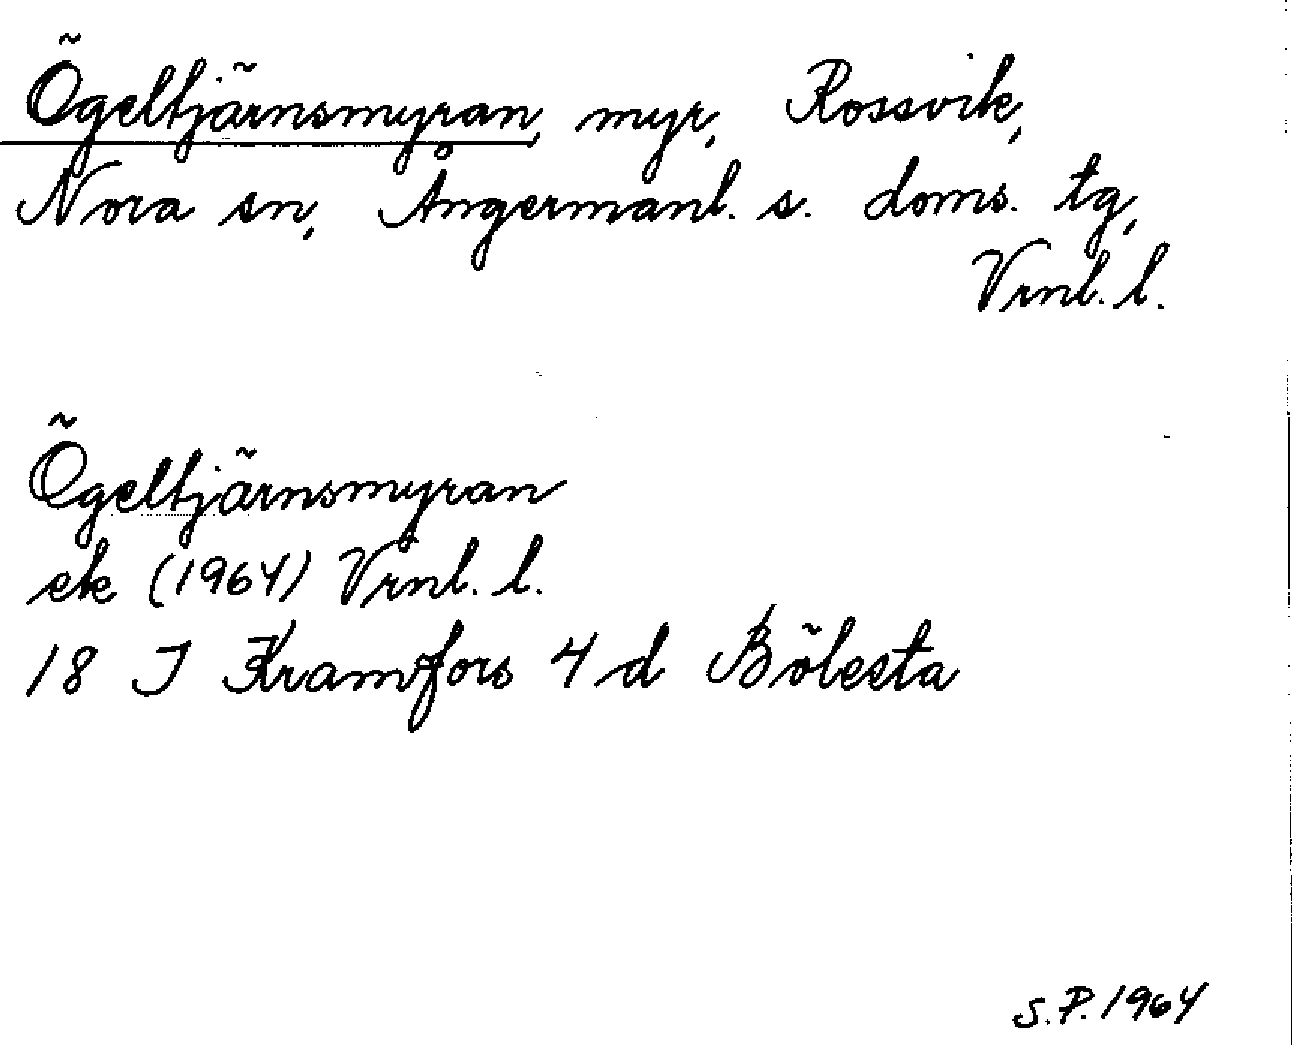 Ögeltjärnsmyran, myr, Rossvik,
Nora sn, Ångermanl. s. doms. tg,
Vrnl. l.
Ögeltjärnsmyran
ek (1964) Vrnl. l.
18 J Kramfors 4 d Bölesta
S.P. 1964